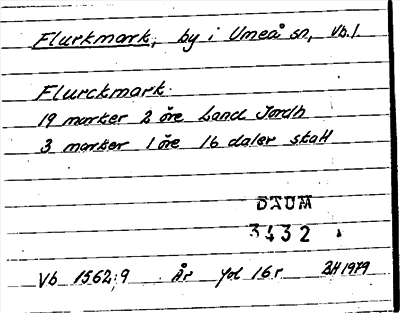 Flurkmark, by i Umeå sn, Vb.l
Flurckmark.
19 marker 2 öre Land Jordh
3 marker 1 öre 16 daler skatt
DAUM
3432
Vb 1562:9 År fol 16r BH 1979